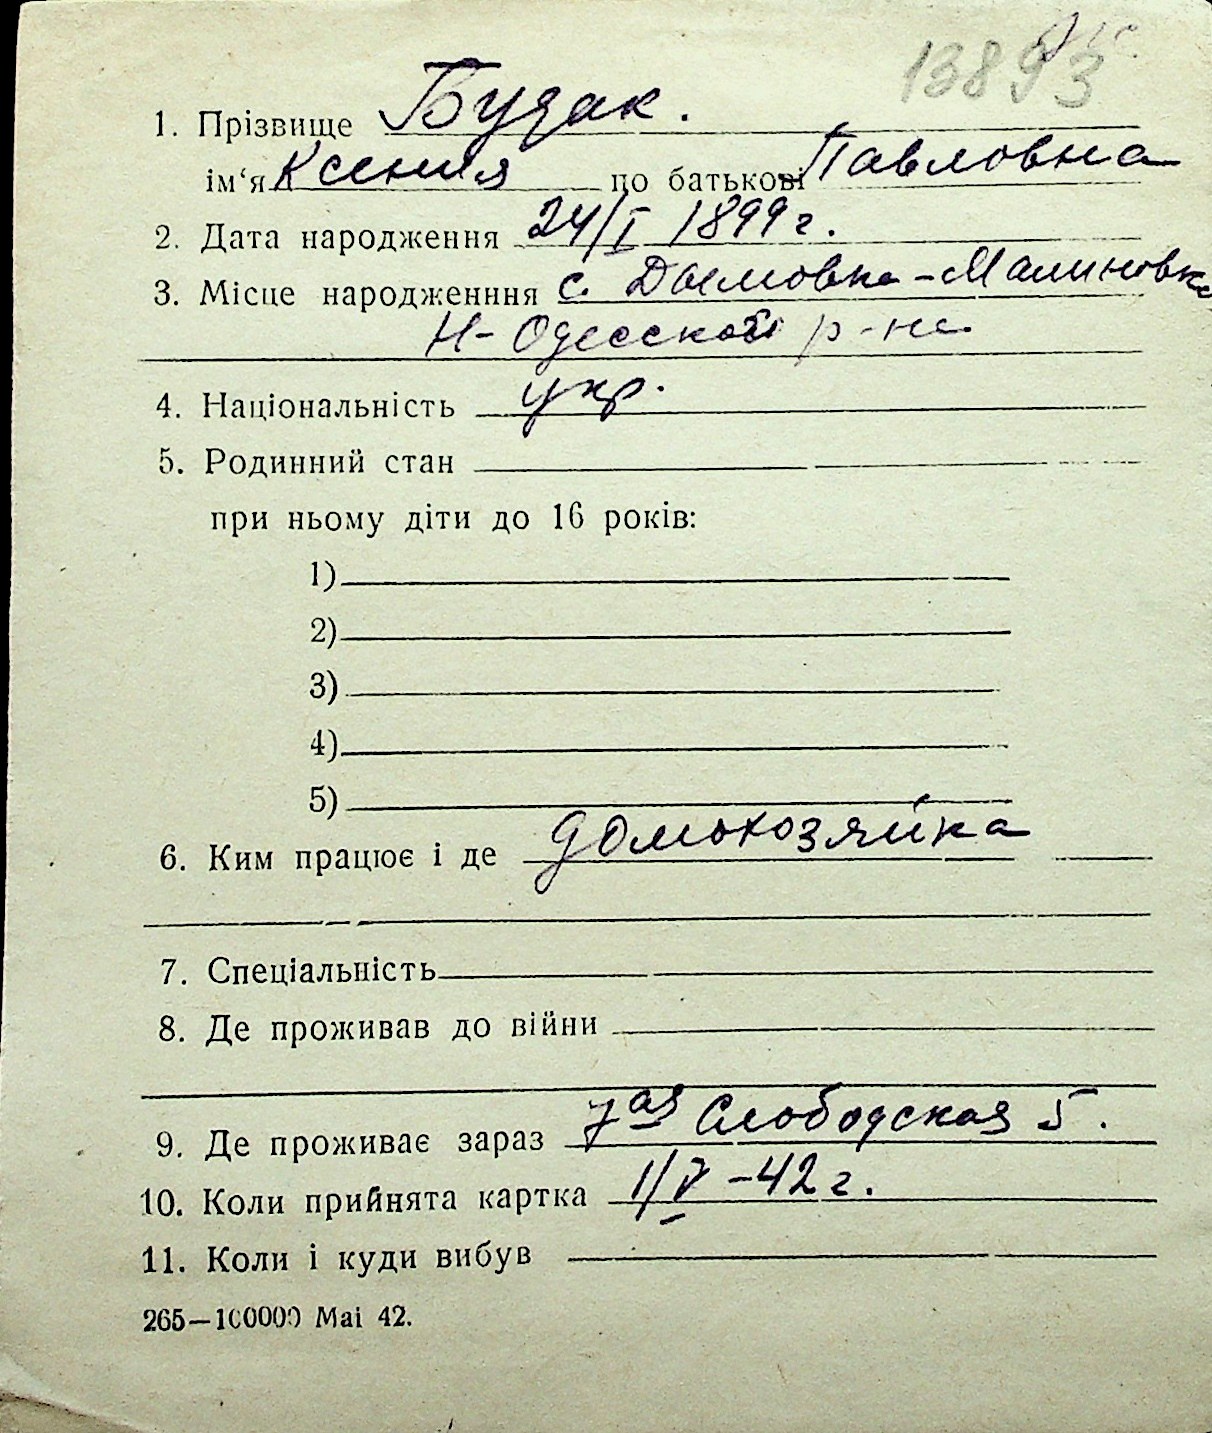 13893
1. Прізвище Будак.
ім‘я Ксения по батькові Павловна
2. Дата народження 24/I 1899 г.
3. Місце народженння с. Дымовка-Малиновка
Н-Одесской р-на
4. Національність укр.
5. Родинний стан
при ньому діти до 16 років:
1)
2)
3)
4)
5)
6. Ким працює і де домохозяйка
7. Спеціальність
8. Де проживав до війни
9. Де проживає зараз 7ая Слободская 5.
10. Коли прийнята картка 1/V-42 г.
11. Коли і куди вибув
265—100000 Маі 42.